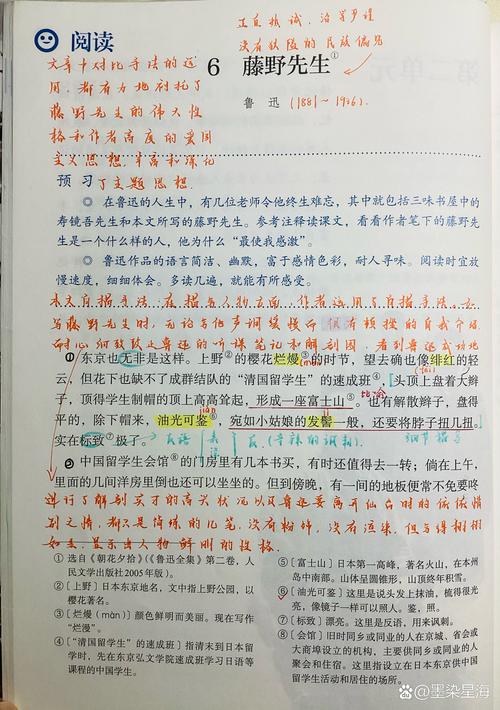 阅读
正直热诚、治学严谨
没有狭隘的民族偏见
6 藤野先生①
鲁迅(1881~1936).
文章中对比手法的运
用,都有力地衬托了
藤野先生的伟大性
格和作者高度的爱国
主义思想,丰富和深化
了主题思想.
预习
◎ 在鲁迅的人生中,有几位老师令他终生难忘,其中就包括三味书屋中的
寿镜吾先生和本文所写的藤野先生。参考注释读课文,看看作者笔下的藤野先
生是一个什么样的人,他为什么“最使我感激”。
◎ 鲁迅作品的语言简洁、幽默,富于感情色彩,耐人寻味。阅读时宜放
慢速度,细细体会。多读几遍,就能有所感受。
本文白描手法:在描写人物方面,作者运用了白描手法.
写藤野先生时,无论写他声调缓慢而很有顿挫的自我介绍
①东京也无非是这样。上野②的樱花烂熳③的时节,望去确也像绯红的轻
云,但花下也缺不了成群结队的“清国留学生”的速成班④,头顶上盘着大辫
子,顶得学生制帽的顶上高高耸起,形成一座富士山⑤。也有解散辫子,盘得
平的,除下帽来,油光可鉴⑥,宛如小姑娘的发髻一般,还要将脖子扭几扭。
实在标致⑦极了。
②中国留学生会馆⑧的门房里有几本书买,有时还值得去一转;倘在上午,
里面的几间洋房里倒也还可以坐坐的。但到傍晚,有一间的地板便常不免要咚
别之情,都只是简练的几笔,没有粉饰,没有渲染,但写得栩栩
如生,显示出人物鲜明的性格.
① 选自《朝花夕拾》(《鲁迅全集》第二卷,人
民文学出版社2005年版)。
②〔上野〕日本东京地名,文中指上野公园,以
樱花著名。
③〔烂熳(màn)〕颜色鲜明而美丽。现在写作
“烂漫”。
④〔“清国留学生”的速成班〕指清末到日本留
学时,先在东京弘文学院速成班学习日语等
课程的中国学生。
⑤〔富士山〕日本第一高峰,著名火山,在本州
岛中南部。山体呈圆锥形,山顶终年积雪。
⑥〔油光可鉴〕这里是说头发上抹油,梳得很光
亮,像镜子一样可以照人。鉴,照。
⑦〔标致〕漂亮。这里是反语,用来讽刺。
⑧〔会馆〕旧时同乡或同业的人在京城、省会或
大商埠设立的机构,主要供同乡或同业的人
聚会和住宿。这里指设立在日本东京供中国
留学生活动和居住的场所。
墨染星海